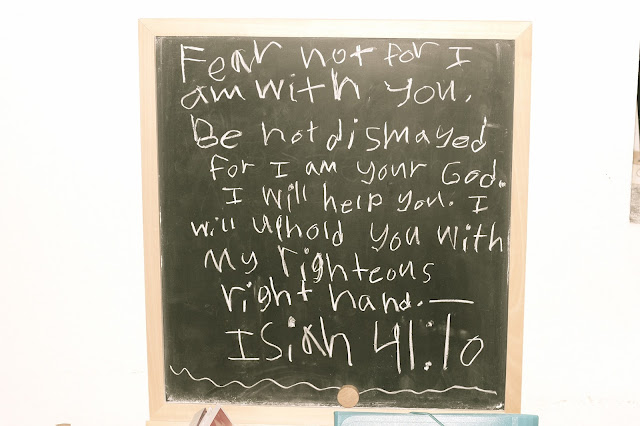 Fear not for I
am with you.
Be not dismayed
for I am your God.
I will help you. I
will uphold you with
My righteous
right hand. —
Isiah 41:10